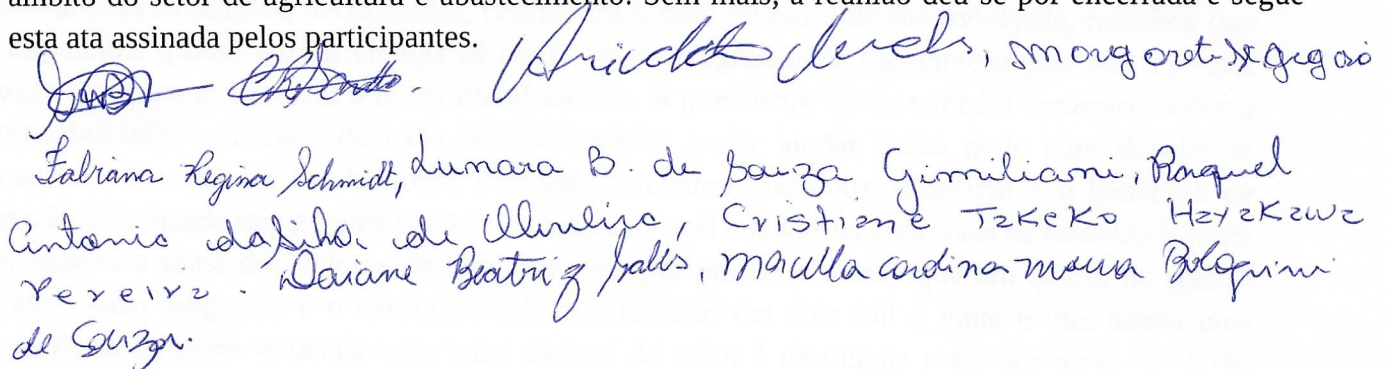 âmbito do setor de agricultura e abastecimento. Sem mais, a reunião deu-se por encerrada e segue
esta ata assinada pelos participantes.
Fabiana Regina Schmidt, Lumara B. de Souza Gimiliani, Raquel
Antonia da Silva de Oliveira, Cristiane Takeko Hayakawa
Pereira. Daiane Beatriz Salls, Marcella Carolina Moura Bolognini
de Souza.